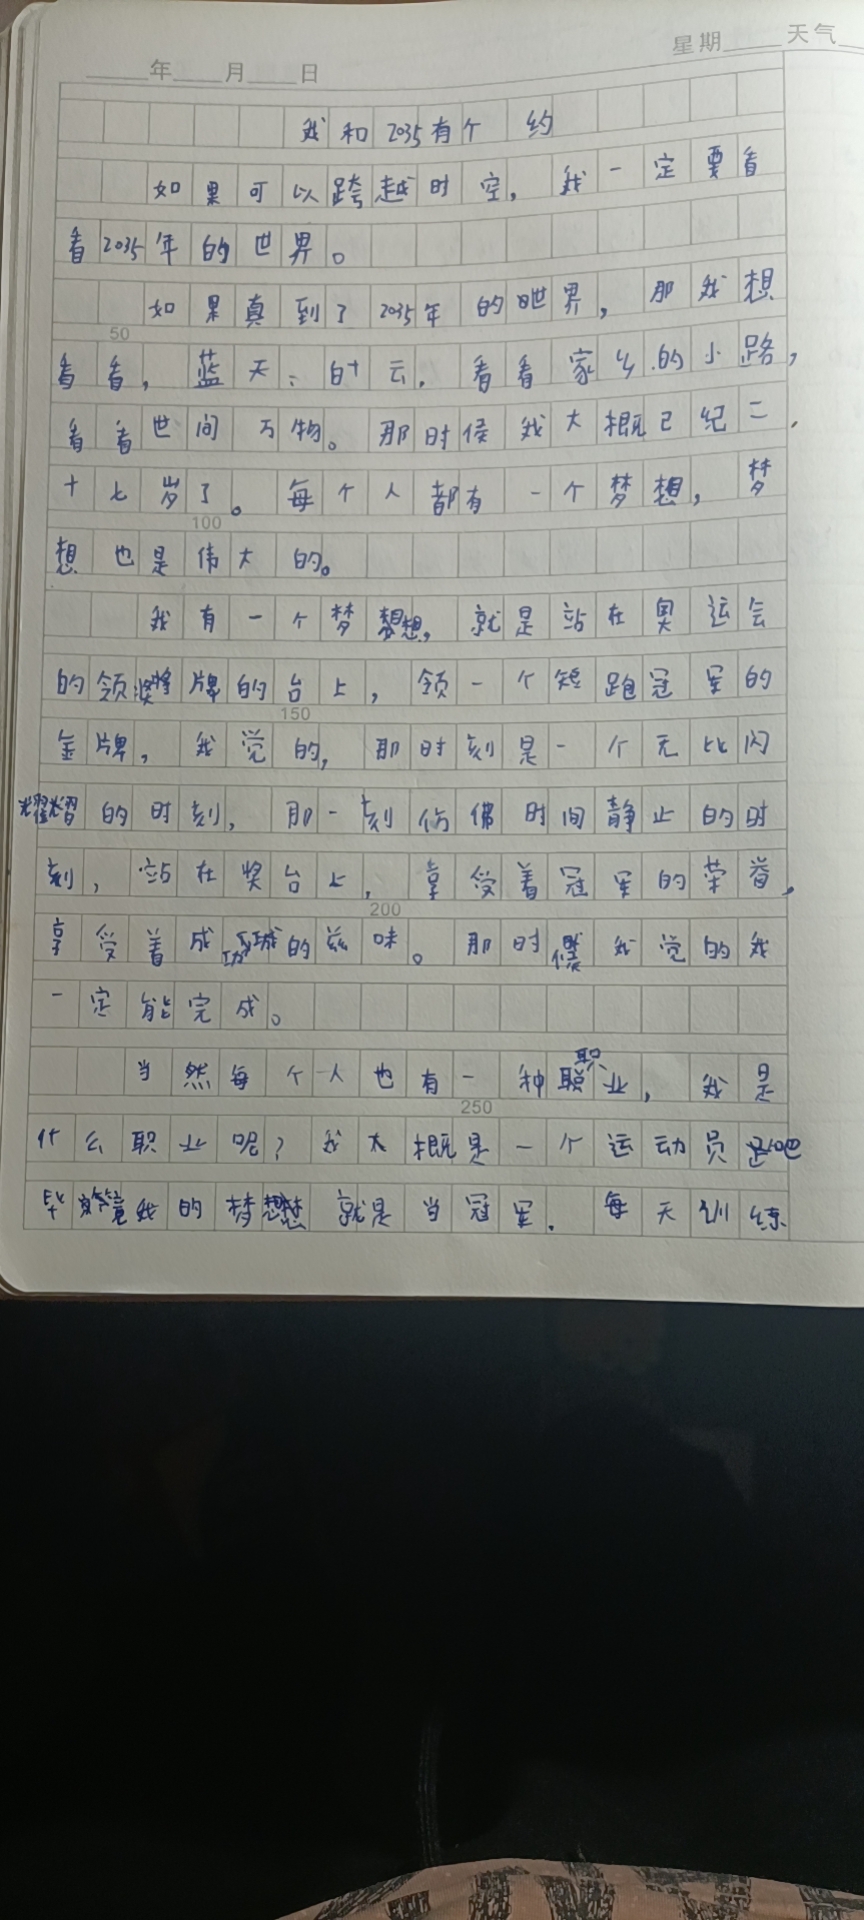 星期 天气
年 月 日
我和2035有个约
如果可以跨越时空，我一定要看
看2035年的世界。
如果真到了2035年的世界，那我想
50
看看，蓝天、白云，看看家乡的小路，
看看世间万物。那时侯我大概已纪二
十七岁了。每个人都有一个梦想，梦
100
想也是伟大的。
我有一个梦想，就是站在奥运会
的领奖牌的台上，领一个短跑冠军的
150
金牌，我觉的，那时刻是一个无比闪
耀的时刻，那一刻仿佛时间静止的时
刻，站在奖台上，享受着冠军的荣誉，
200
享受着成功的滋味。那时候我觉的我
一定能完成。
当然每个人也有一种职业，我是
250
什么职业呢？我大概是一个运动员吧
毕竟我的梦想就是当冠军．每天训练